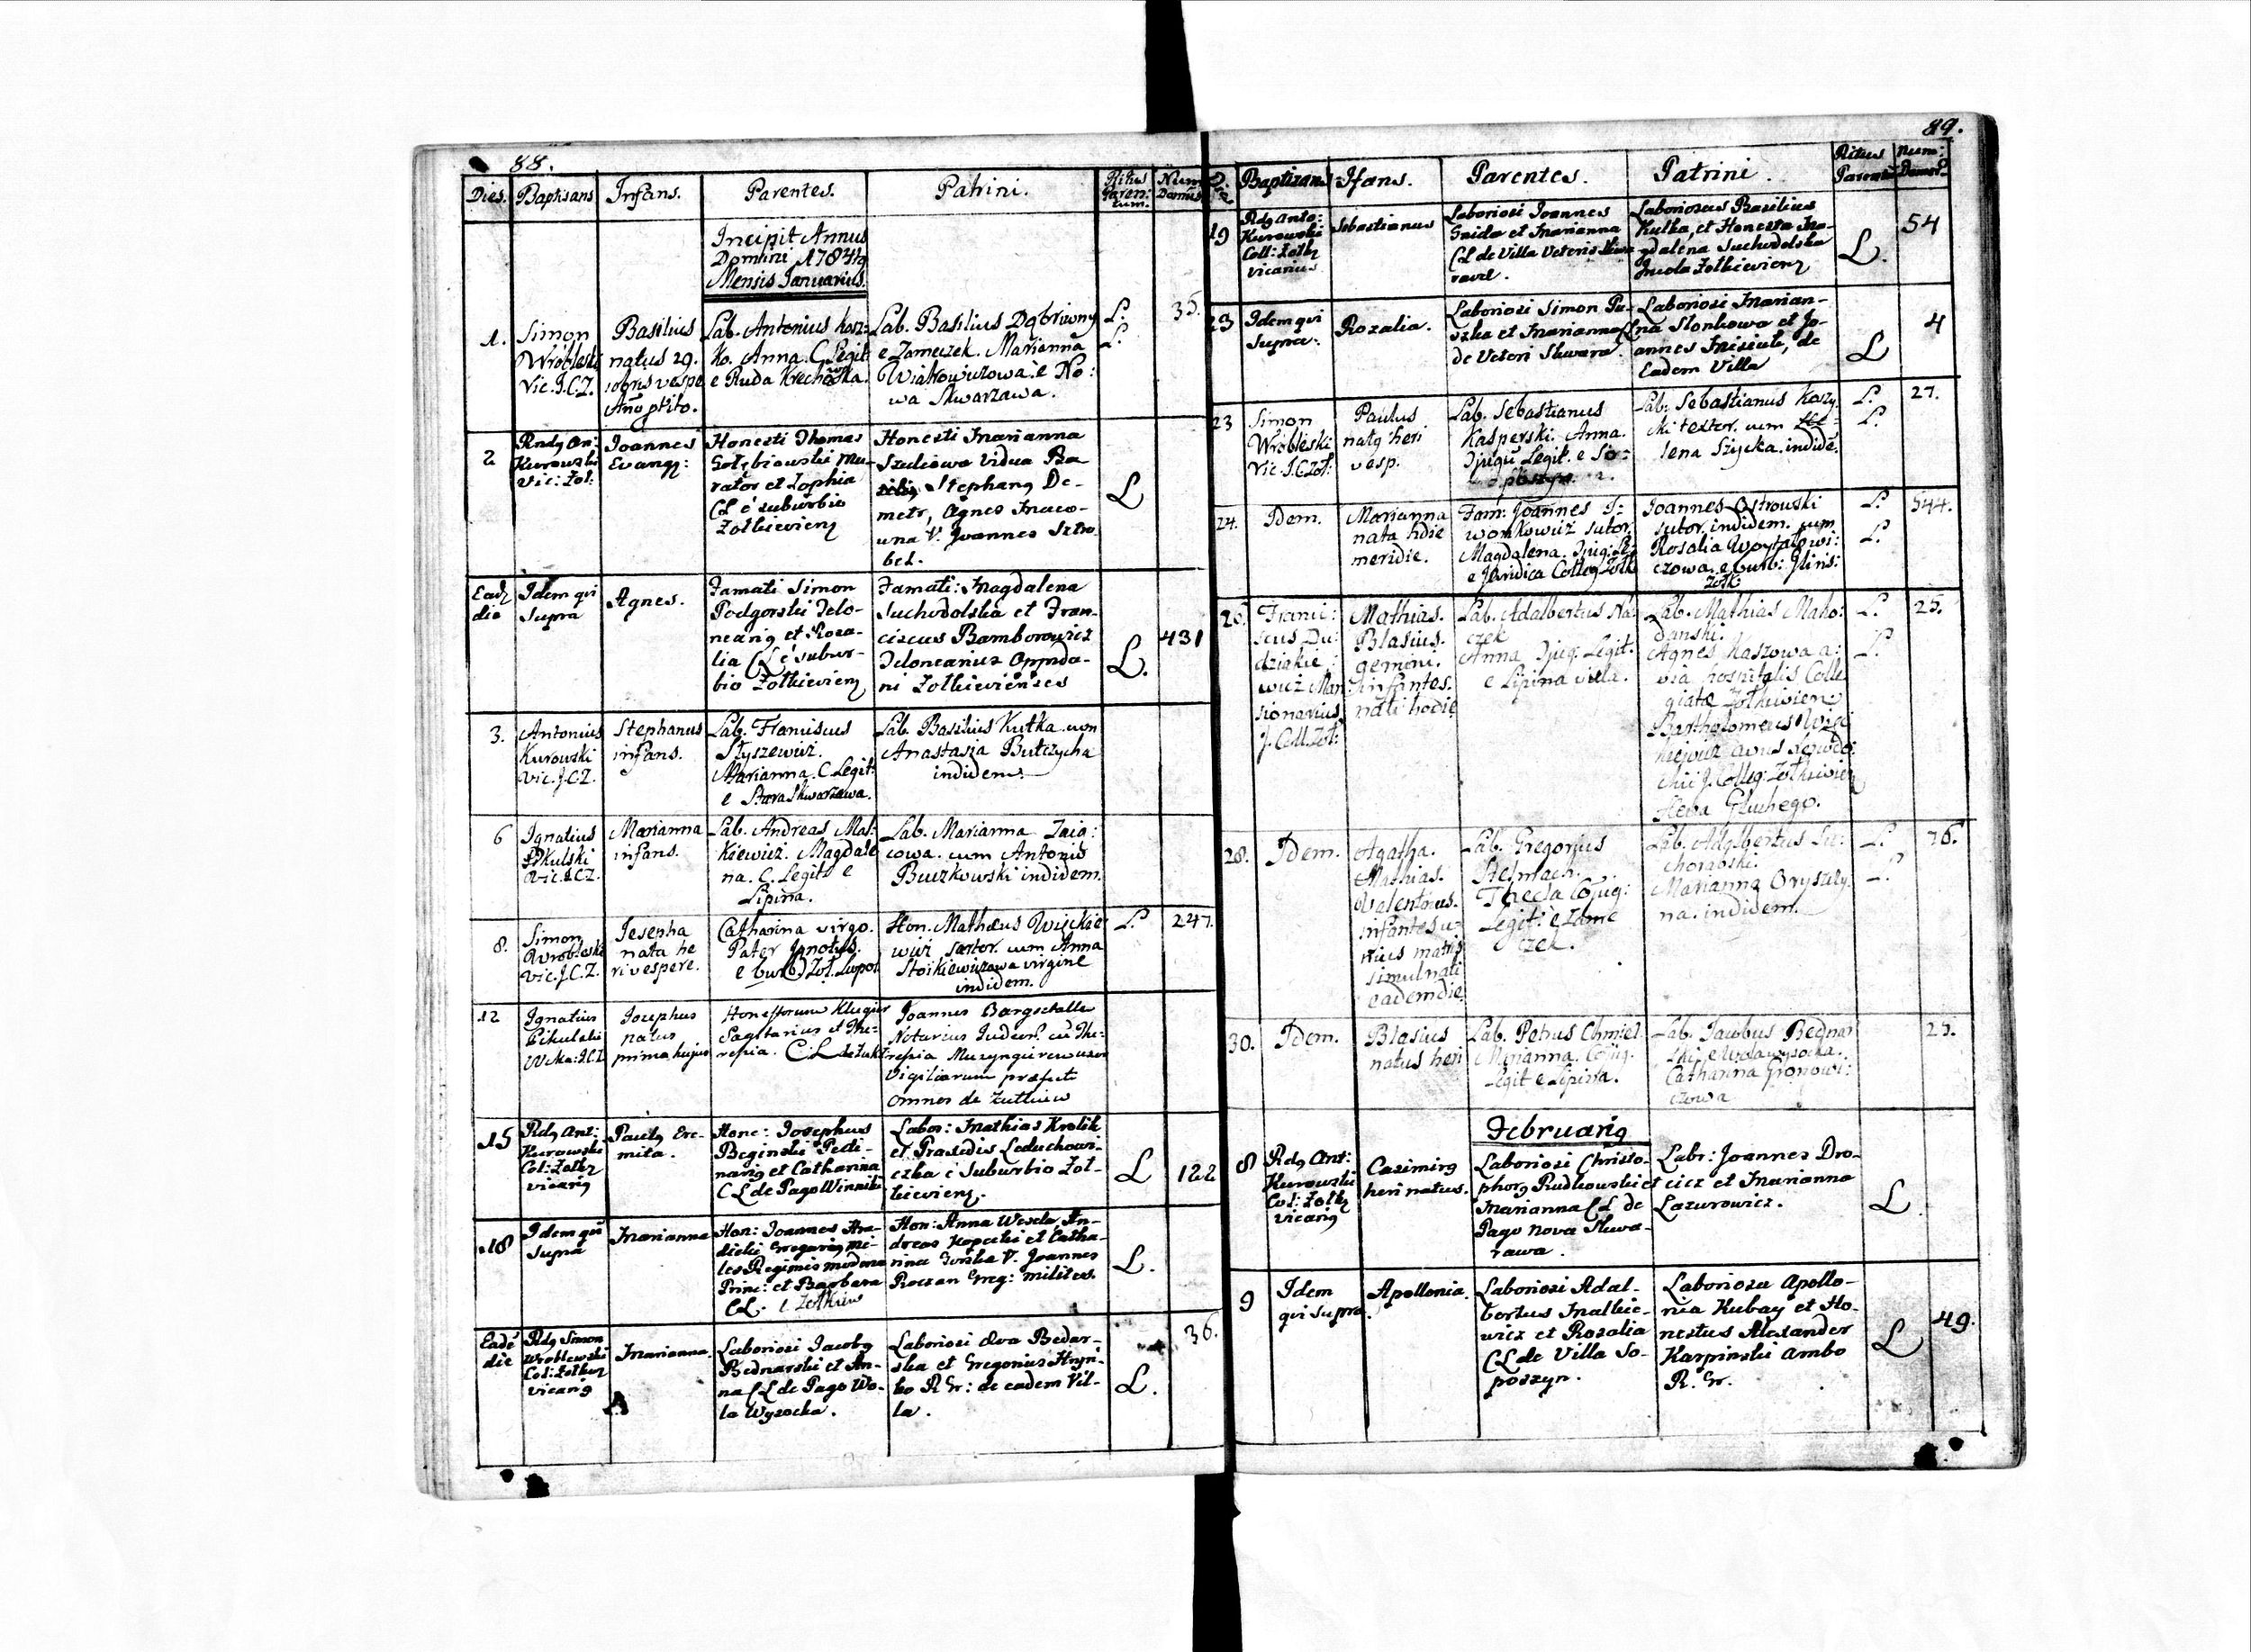 88.
Dies. Baptisans Infans. Parentes. Patrini. Ritus Paren: tum. Num: Domus
Incipit Annus
Domini 1784tq
Mensis Januarius.
1.
Simon
Wrobleski
Vic. I.C.Z.
Basilius
natus 29.
vespe
Lab. Antonius Kosz:
ko. Anna. C. Legit:
e Ruda Krechowska.
Lab. Basilius Dąbriwny
e Zameczek. Marianna
Wiatrowiczowa. e No:
wa Skwarzawa.
L.
L.
35.
2
Rndq An:
Kurowski
Vic: Zol:
Joannes
Evangq:
Honesti Thomas
Gołębiowski Mu-
rator et Zophia
CL è suburbio
Zołkievienq
Honesti Marianna
Szulcowa Vidua Ba
Stephanq De-
metr, Agnes
una V. Joannes Sztro
bel.
L
Eadq
die
Idem qui
Supra
Agnes.
Famati Simon
Podgorski Delo-
neariq et Rosa-
lia CL è subur-
bio Zołkievienq
Famati: Magdalena
Suchodolska et Fran-
ciscus Bamborowicz
Teloncarius Oppida-
ni Zolkievienses
L.
431
3.
Antonius
Kurowski
Vic. J.C.Z.
Stephanus
infans.
Lab. Franiscus
Słyszewicz.
Marianna. C. Legit:
e Stara Skwarzawa.
Lab. Basilius Kutka. cum
Anastasia Butczycha
indidem.
6
Ignatius
Pikulski
Vic. I.C.Z.
Marianna
infans.
Lab. Andreas Mał:
kiewicz. Magdale
na. C. Legit: e
Lipina.
Lab. Marianna Zaia:
cowa. cum Antonio
Buczkowski indidem.
8.
Simon
Wrobleski
Vic. J.C.Z.
Josepha
nata he
ri vespere.
Catharina virgo.
Pater Ignotus.
e burb Zoł.
Hon. Mathæus Więckie
wicz sartor. cum Anna
Stoikiewiczowa virgine
indidem.
L.
247.
12
Ignatius
Pikulski
Josephus
natus
prima hujus
Honestorum Klugier
Sagitarius et The:
resia. C: L
Joannes Bargsctalle
Notarius Judex. cu The:
resia
Vigiliarum præfecti
omnes de Zulkiew
15
Rdq Ant:
Kurowski
Col: Zołkq
vicariq
Paulq Ere-
mita.
Hone: Josephus
Beginski Pedi-
nariq et Catharina
CL de Pago Winniki
Labor: Mathias Krolik
et Praxedis Leduchowi-
czka è Suburbio Zoł-
kievienq.
L
122
18
Idem qui
supra
Marianna
Hon: Joannes
dicki Gregariq mi-
les Regiminis moderna
Princ: et Barbara
CL. e Zołkiew
Hon: Anna Wesela, An-
dreas Kopecki et Catha-
rina Gorska V. Joannes
Roczan Greg: milites.
L.
Eadè
die
Rdq Simon
Wroblewski
Col: Zołkq
vicariq
Marianna.
Laboriosi Jacobq
Bednarski et An-
na CL de Pago Wo-
la Wysocka.
Laboriosi Eva Bednar-
ska et Gregorius Hryń-
ko R. Gr: de eadem Vil-
la.
L.
36.
89.
Baptizans Ifans. Parentes. Patrini. Ritus Parentu Num: Domor:
19
Rdq Anto:
Kurowski
Coll: Zołkq
vicarius
Sebastianus
Laboriosi Joannes
Gaida et Marianna
CL de Villa Veteris Skwa
rave.
Laboriosus Basilius
Kutka, et Honesta Ma-
gdalena Suchodolska
Incola Zołkievienq
L.
54
23
Idem qui
supra.
Rozalia.
Laboriosi Simon Pu-
szka et Marianna CL
de Veteri Skwara.
Laboriosi Marian-
na Slonkowa et Jo-
annes Misiule, de
Eadem Villa
L
4
23
Simon
Wrobleski
Vic. I.C.Zoł:
Paulus
natq heri
vesp.
Lab. Sebastianus
Kasperski. Anna.
Cjugu Legit. e So:
Lab. Sebastianus Kozy.
cki textor. cum
lena Szycka. indide.
L.
L.
27.
24.
Idem.
Marianna
nata hdie
meridie.
Fam: Joannes
wonkowicz sutor
Magdalena. Cjug: Le
e Juridica Colleg Zołk
Joannes Ostrowski
sutor indidem. cum
Rosalia Woytałowi:
czowa. e burb: Glins:
Zołk:
L.
L.
544.
26.
Franci:
scus Du:
dzi;kie:
wicz Man
sionarius
J. Coll. Zoł:
Mathias.
Blasius.
gemini.
infantes.
nati hodie
Lab. Adalbertus Na:
czek
Anna Cjug: Legit.
e Lipina viela.
Lab. Mathias Mako:
danski.
Agnes Kaszowa a:
via hospitalis Colle
giatæ Zołkievien:
Bartholomeus Więc
kiewicz avus
chii J. Colleg: Zołkievien
Głuchego.
L.
L.
25.
28.
Idem.
Agatha.
Mathias.
Valentinus.
infantes u-
nius matris
simul nati
eadem die
Lab. Gregorius
Stelmach.
Thecla Cojug:
Legit: e Zame
czek.
Lab. Adalbertus Su:
chorabski.
Marianna Oryszczy.
na. indidem.
L.
L.
76.
30.
Idem.
Blasius
natus heri
Lab. Petrus Chmiel.
Marianna. Cojug.
Legit e Lipina.
Lab. Jacobus Bednar
ski e Wola wysocka.
Catharina Gronowi:
czowa
25.
Februariq
8
Rdq Ant:
Kurowski
Col: Zołkq
vicariq
Casimirq
heri natus.
Laboriosi Christo-
phorq Rudkowski et
Marianna CL de
Pago Nova Skwa-
rawa.
Labr: Joannes Dro-
cicz et Marianna
Lazurowicz.
L.
9
Idem
qui supra.
Apollonia.
Laboriosi Adal-
bertus Malkie-
wicz et Rozalia
CL de Villa So-
poszyn.
Laboriosa Apollo-
nia Kubay et Ho-
nestus Alexander
Karpinski ambo
R. Gr.
L
49.